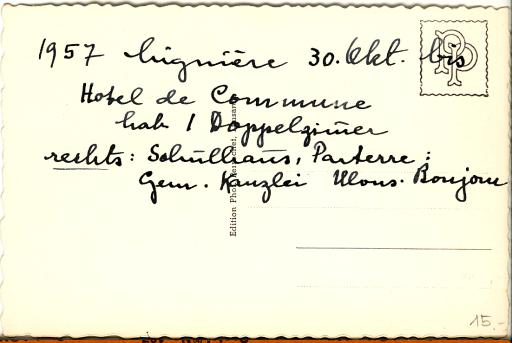 1957 Lignière 30. Okt. bis
Hotel de Commune
hab 1 Doppelzimer
rechts: Schulhaus, Parterre:
Gem. Kanzlei Mons. Bonjour
Edition
15.-